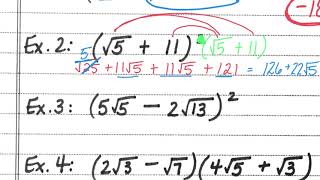 -18
Ex. 2: (√5 + 11)² (√5 + 11)
5
√25 + 11√5 + 11√5 + 121 = 126 + 22√5
Ex. 3: (5√5 - 2√13)²
Ex. 4: (2√3 - √7)(4√5 + √3)